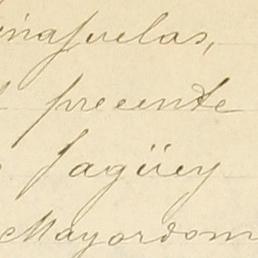 iñasuelas,
preente
Jagüey
Mayordom